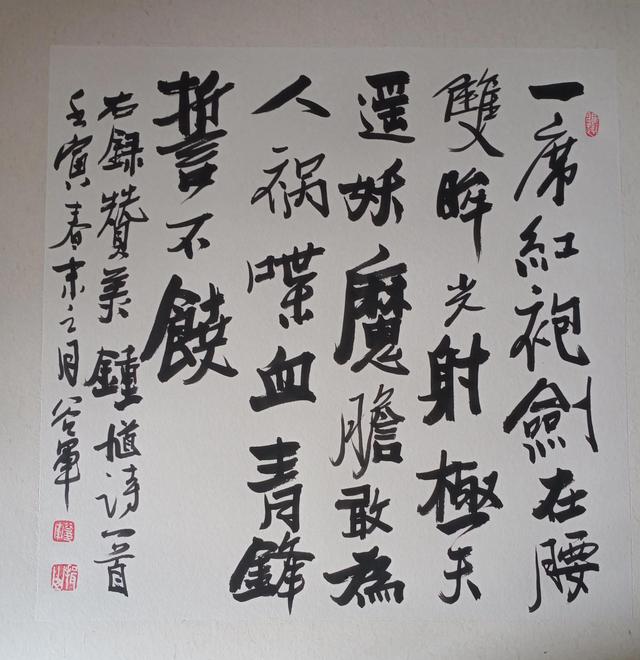 一席紅袍劍在腰
雙眸光射極天
遥妖魔膽敢為
人祸喋血青鋒
誓不饒
右録贊美鍾馗诗一首
壬寅春末之月谷軍